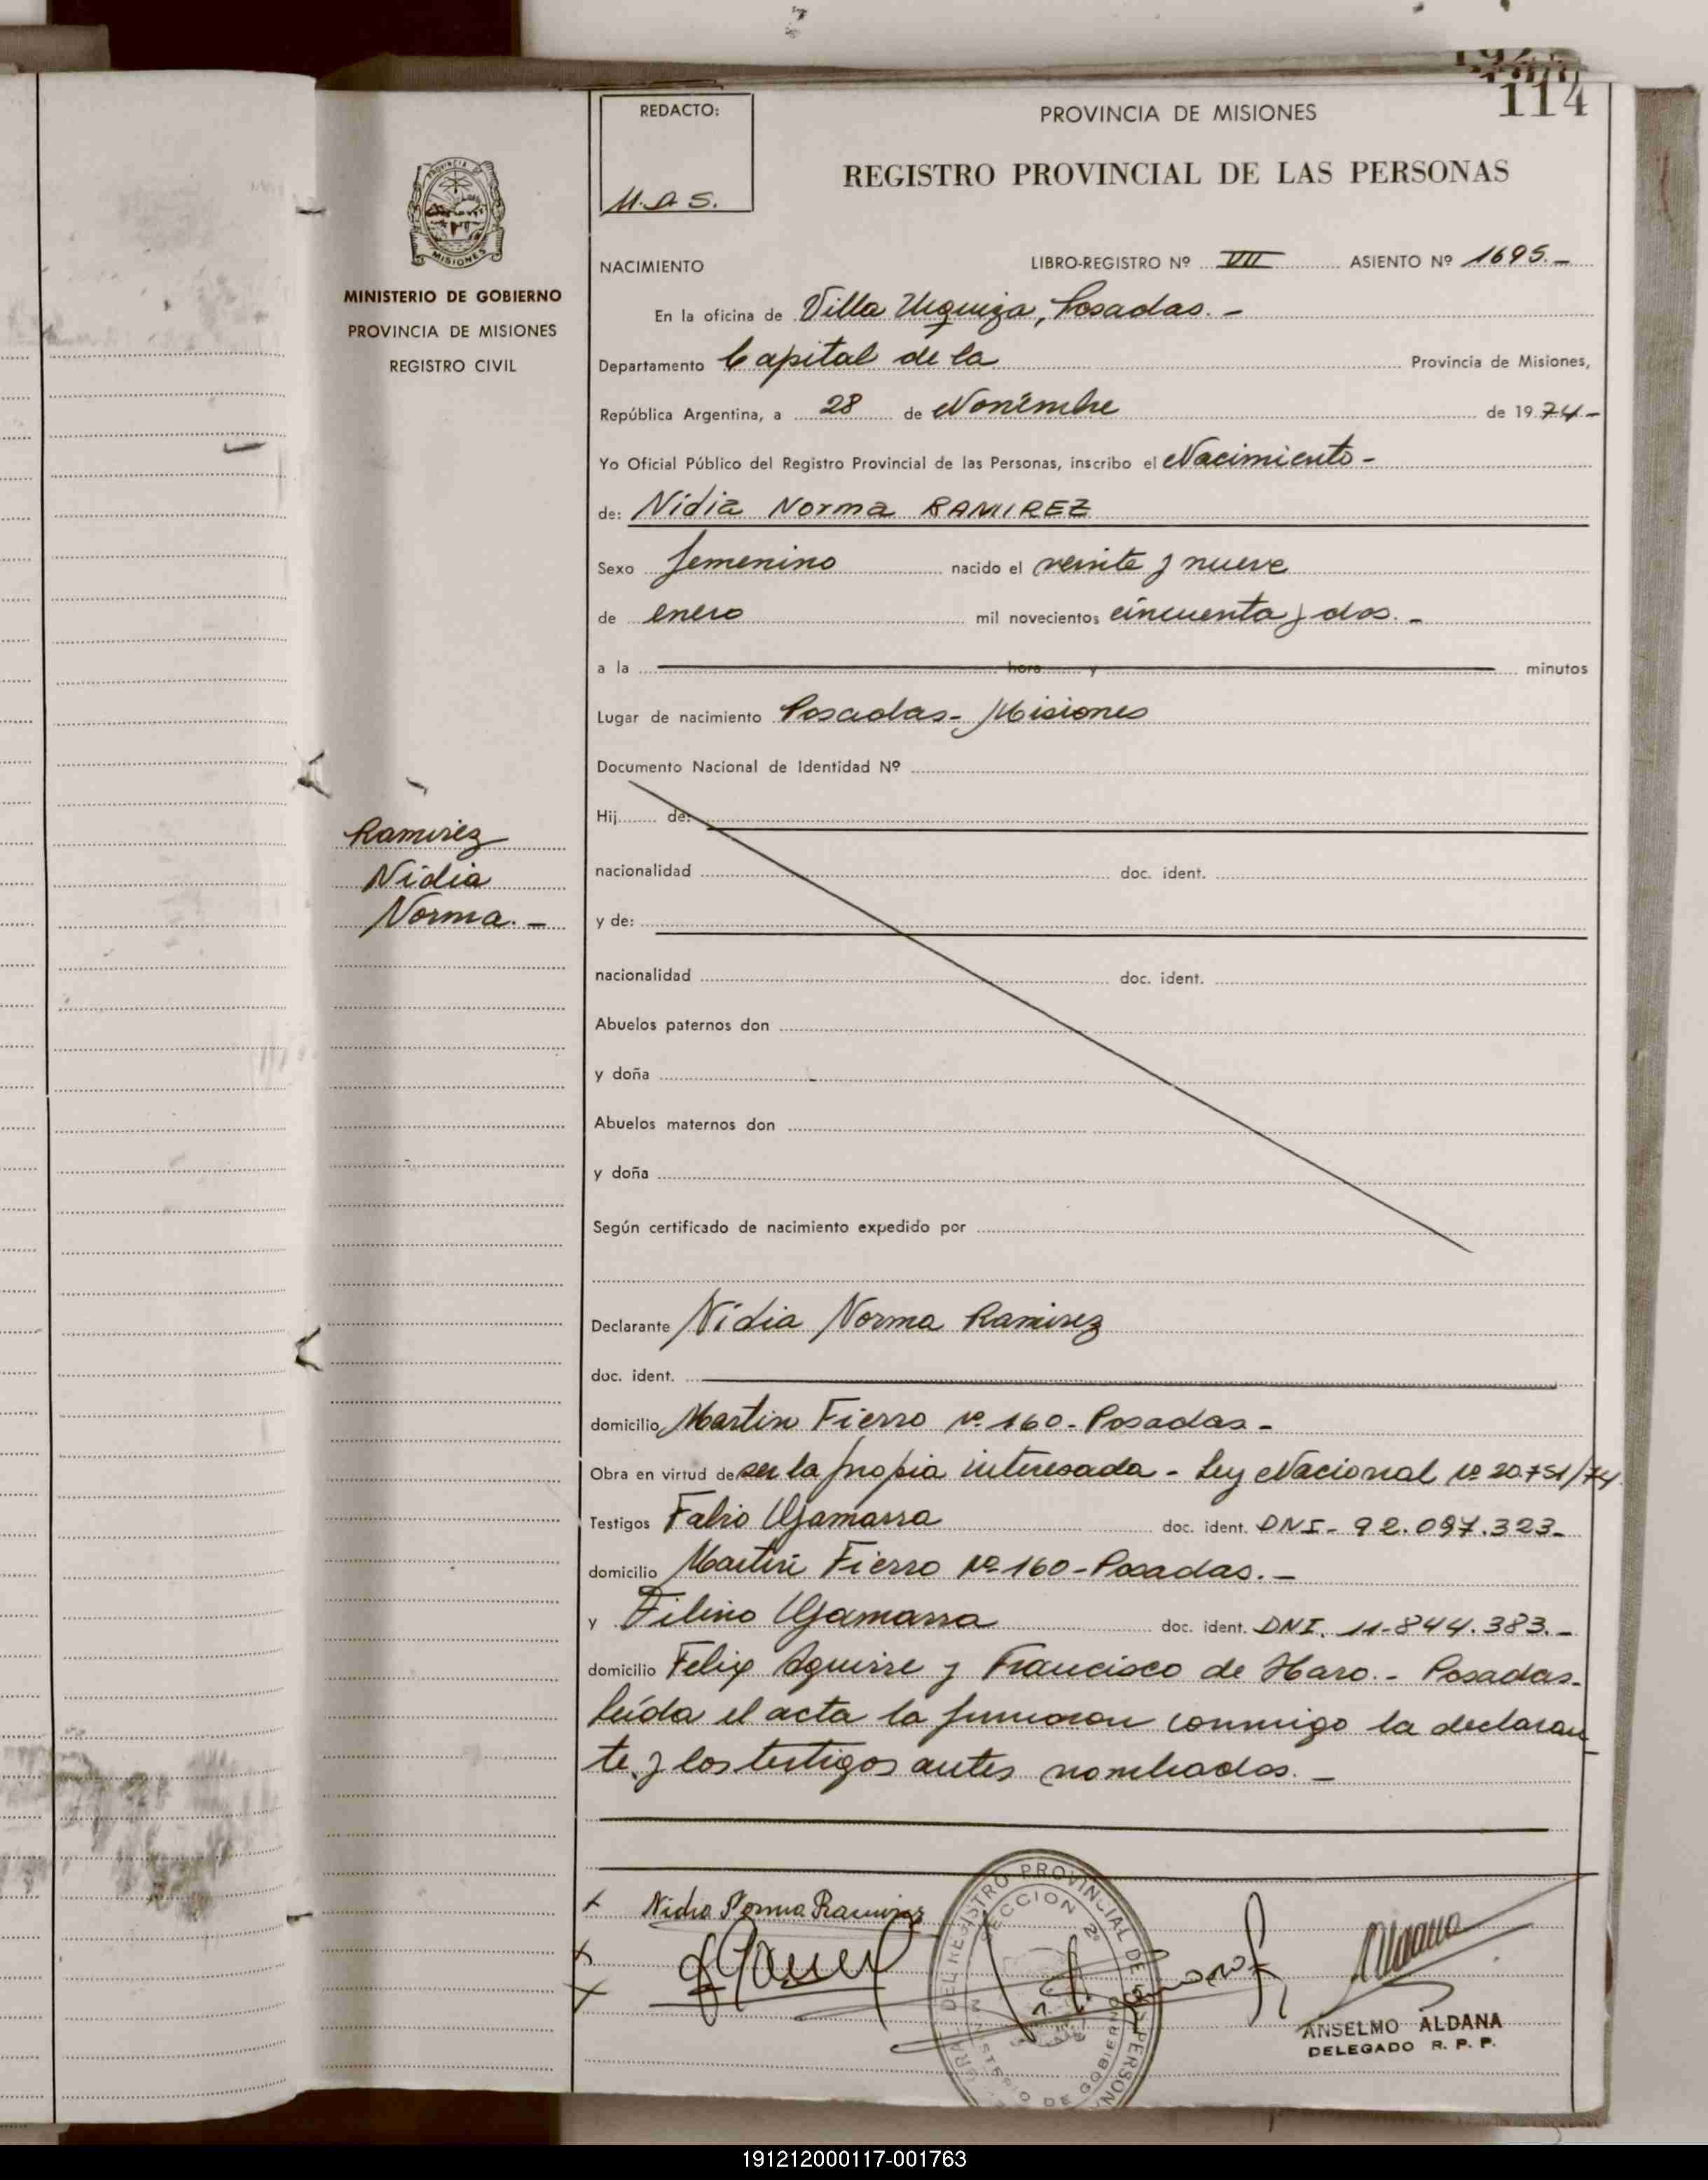 114
REDACTO:
M.A.S.
PROVINCIA DE MISIONES
REGISTRO PROVINCIAL DE LAS PERSONAS
PROVINCIA DE
MISIONES
MINISTERIO DE GOBIERNO
PROVINCIA DE MISIONES
REGISTRO CIVIL
NACIMIENTO LIBRO-REGISTRO Nº VII ASIENTO Nº 1695.-
En la oficina de Villa Urquiza, Posadas.-
Departamento Capital de la Provincia de Misiones,
República Argentina, a 28 de Noviembre de 1974.-
Yo Oficial Público del Registro Provincial de las Personas, inscribo el Nacimiento-
de: Nidia Norma RAMIREZ
Sexo femenino nacido el veinte y nueve
de enero mil novecientos cincuenta y dos.-
a la hora y minutos
Lugar de nacimiento Posadas- Misiones
Documento Nacional de Identidad Nº
Hij de:
Ramirez
Nidia
Norma.-
nacionalidad doc. ident.
y de:
nacionalidad doc. ident.
Abuelos paternos don
y doña
Abuelos maternos don
y doña
Según certificado de nacimiento expedido por
Declarante Nidia Norma Ramirez
doc. ident.
domicilio Martin Fierro Nº 160- Posadas-
Obra en virtud de ser la propia interesada - Ley Nacional Nº 20.751/74
Testigos Gamarra doc. ident. DNI- 92.097.323-
domicilio Martin Fierro Nº 160-Posadas.-
y Gamarra doc. ident. DNI. 11-844.383.-
domicilio Felix Aguirre y Francisco de Haro.- Posadas-
leída el acta la firmaron conmigo la declaran
te y los testigos antes nombrados.-
Nidia Norma Ramirez
DEL REGISTRO PROVINCIAL DE LAS PERSONAS
SECCION 2ª
MINISTERIO DE GOBIERNO
ANSELMO ALDANA
DELEGADO R. P. P.
191212000117-001763